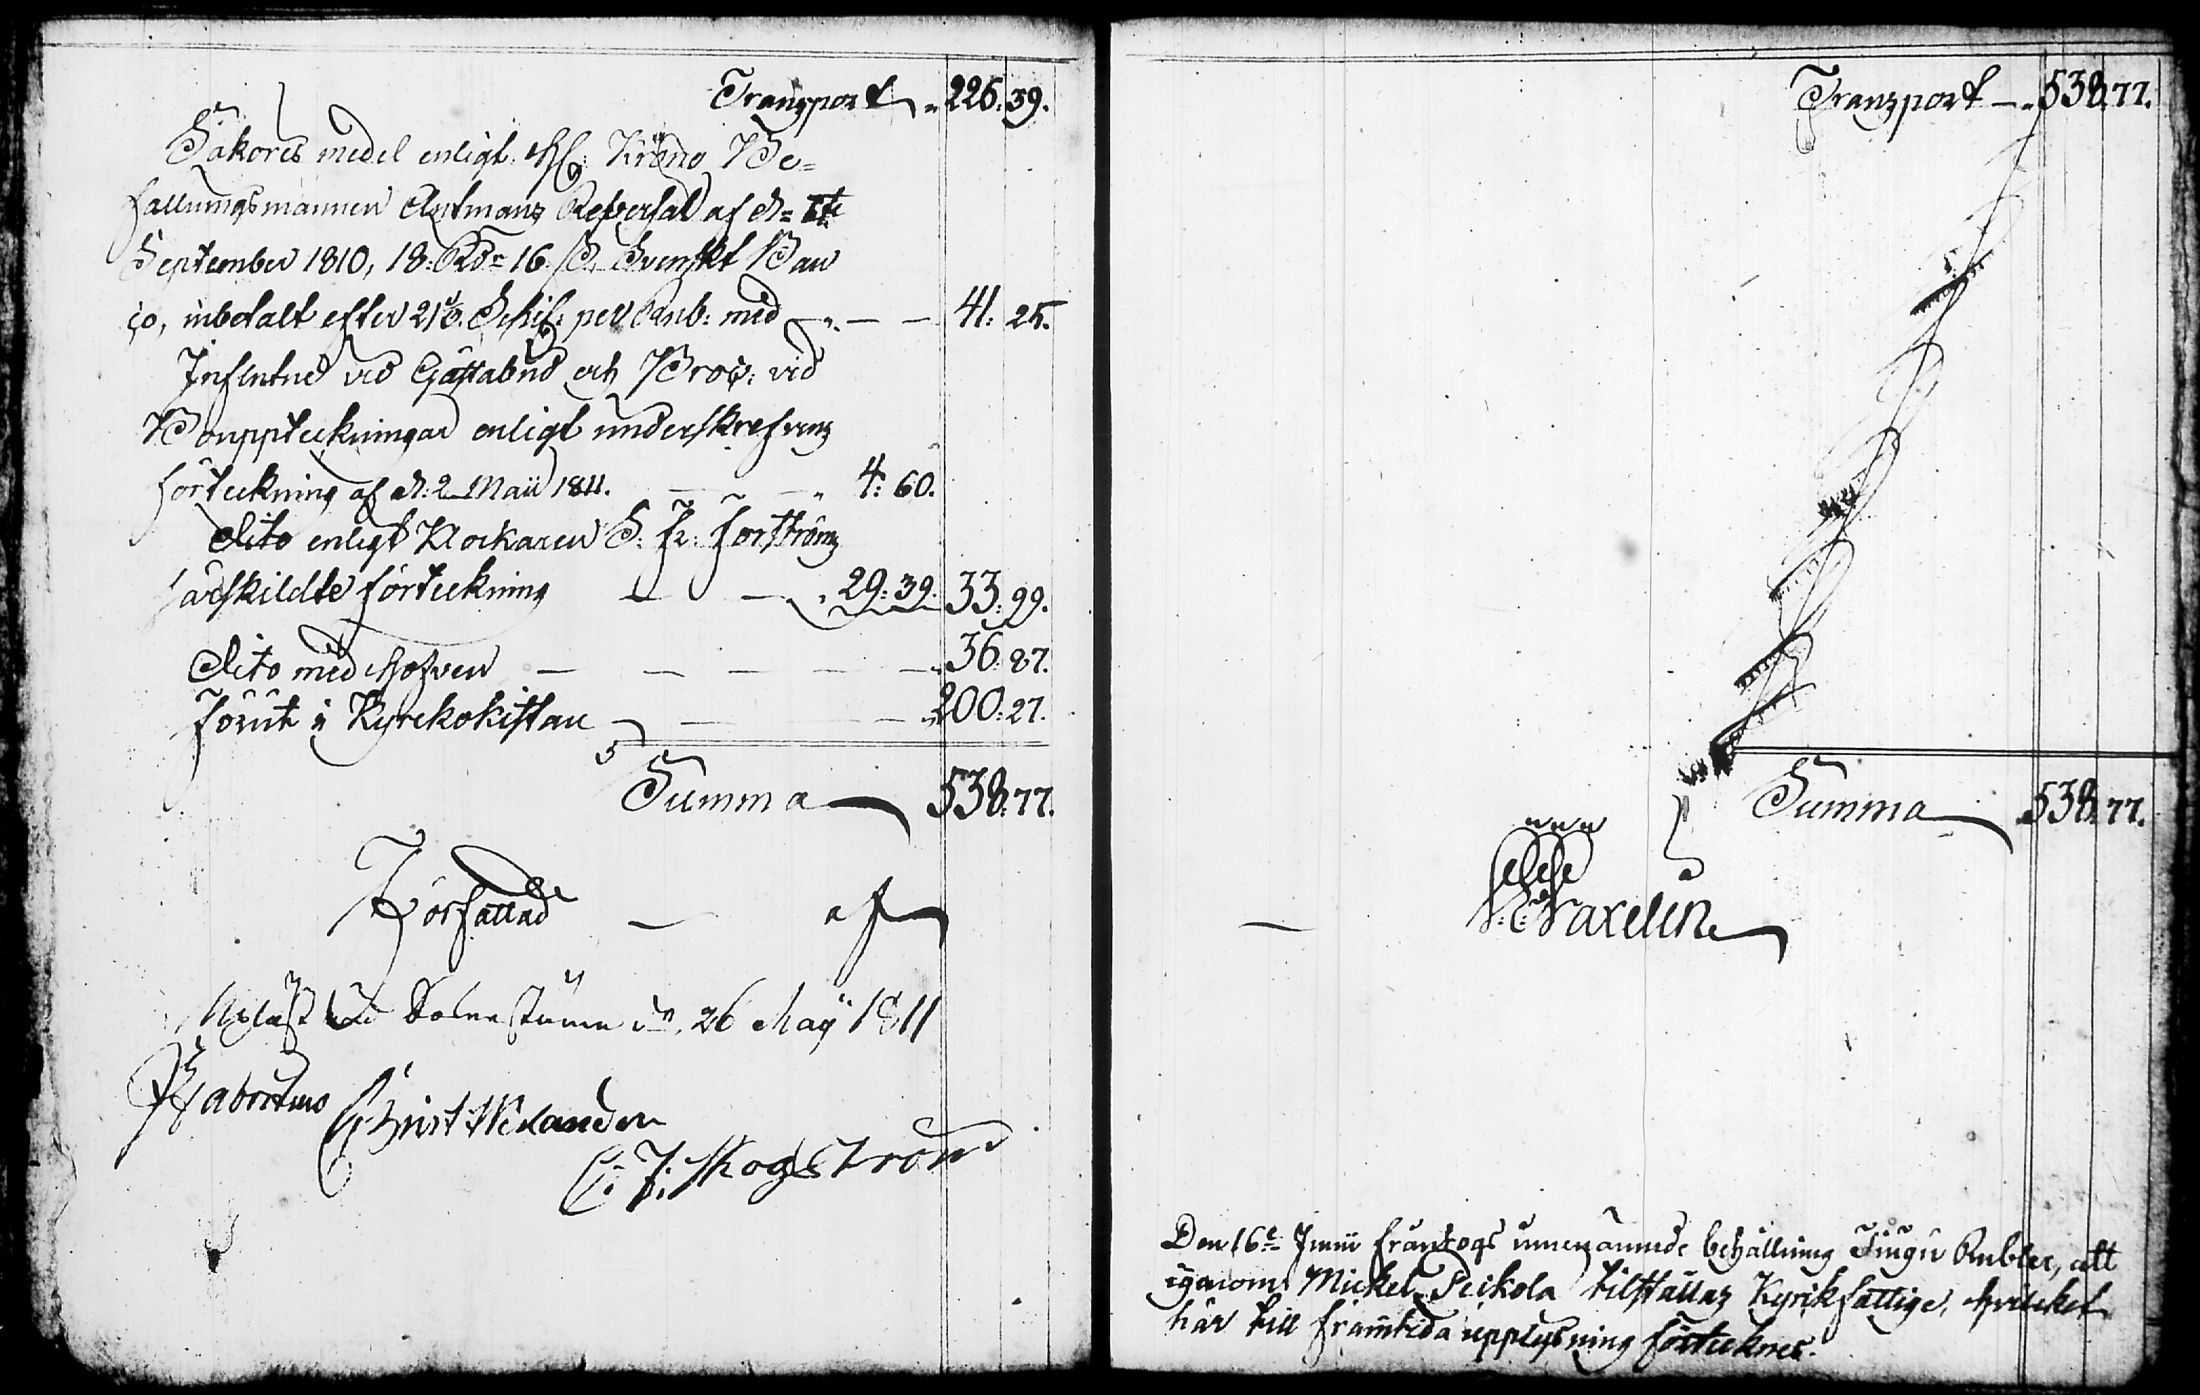 Transport 226. 39.
Sakören medel enligt Hr: Krono Be=
fallningsmannen Reversal af d:
September 1810, 18: Rdr 16 Svenskt Ban
co, inbetalt efter Schil: per Rub: med 41: 25.
Influtne vid Gästabud och Bröl: vid
Bouppteckningar enligt underskrefvens
förteckning af d: 2 Maii 1811. 4: 60.
Dito enligt Klockaren S: Fr: Forström
särskildte förteckning 29: 39. 33: 99.
Dito med Håfven 36: 87.
Förut i Kyrckokistan 200: 27.
Summa 538: 77.
Författad af
Upläst vid Sockenstuma dn 26 Maÿ 1811
Christ: Welander
C: J: Skogström
Transport 538. 77.
Summa 538. 77.
Vaxelin
Den 16de Junii fråntogs innenämnde behållning Tiugu Rubler, att
igenom Mickel Peikola tilställas Kyrkfattige, hvilcket
här till framtida upplysning förtecknes.